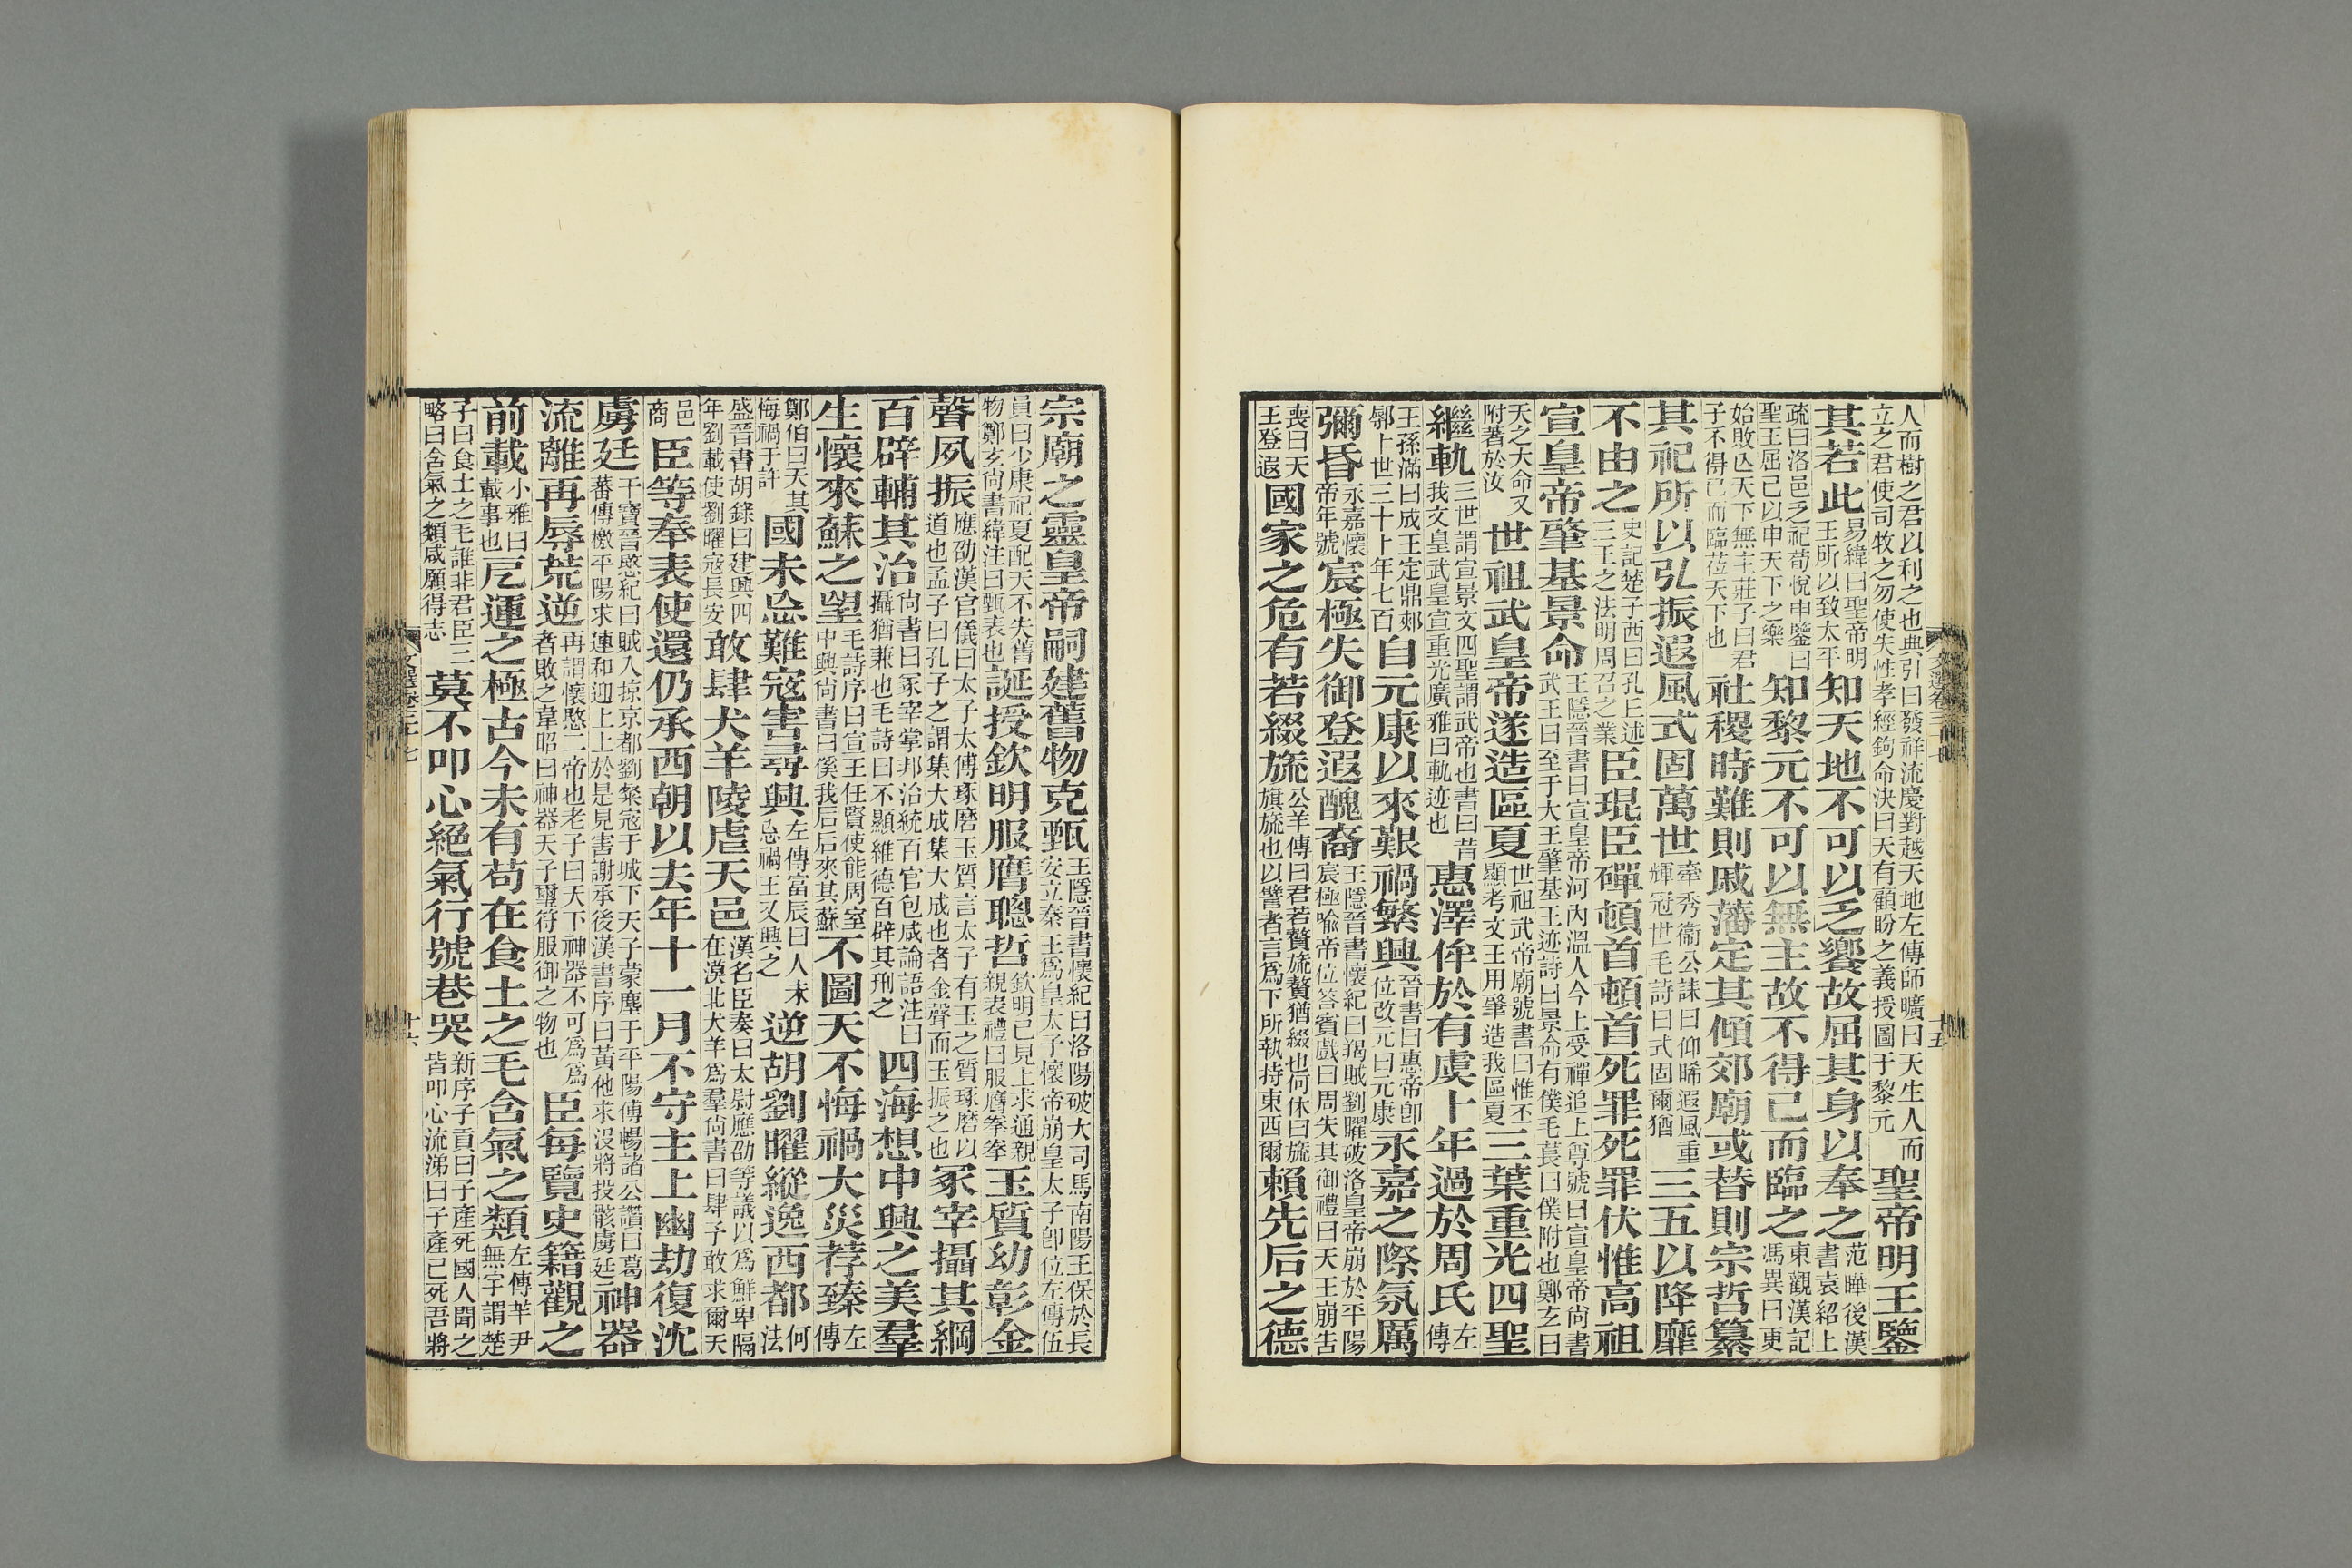 人而樹之君以利之也典引曰發祥流慶對越天地左傳師曠曰天生人而
立之君使司牧之勿使失性孝經鉤命決曰天有顧盼之義授圖于黎元
聖帝明王鑒
其若此
易緯曰聖帝明
王所以致太平
知天地不可以乏饗故屈其身以奉之
范曄後漢
書袁紹上
疏曰洛邑乏祀荀悅申鑒曰
聖王屈己以申天下之樂
知黎元不可以無主故不得已而臨之
東觀漢記
馮異曰更
始敗亾天下無主莊子曰君
子不得已而臨莅天下也
社稷時難則戚藩定其傾郊廟或替則宗哲纂
其祀所以弘振遐風式固萬世
牽秀衞公誄曰仰晞遐風重
輝冠世毛詩曰式固爾猶
三五以降靡
不由之
史記楚子西曰孔丘述
三王之法明周召之業
臣琨臣磾頓首頓首死罪死罪伏惟高祖
宣皇帝肇基景命
王隱晉書曰宣皇帝河內溫人今上受禪追上尊號曰宣皇帝尚書
武王曰至于大王肇基王迹詩曰景命有僕毛萇曰僕附也鄭玄曰
天之大命又
附著於汝
世祖武皇帝遂造區夏
世祖武帝廟號書曰惟丕
顯考文王用肇造我區夏
三葉重光四聖
繼軌
三世謂宣景文四聖謂武帝也書曰昔
我文皇武皇宣重光廣雅曰軌迹也
惠澤侔於有虞卜年過於周氏
左
傳
王孫滿曰成王定鼎郟
鄏卜世三十卜年七百
自元康以來艱禍繁興
晉書曰惠帝卽
位改元曰元康
永嘉之際氛厲
彌昏
永嘉懷
帝年號
宸極失御登遐醜裔
王隱晉書懷紀曰羯賊劉曜破洛皇帝崩於平陽
宸極喻帝位答賓戲曰周失其御禮曰天王崩告
喪曰天
王登遐
國家之危有若綴旒
公羊傳曰君若贅旒贅猶綴也何休曰旒
旗旒也以譬者言爲下所執持東西爾
賴先后之德
宗廟之靈皇帝嗣建舊物克甄
王隱晉書懷紀曰洛陽破大司馬南陽王保於長
安立秦王爲皇太子懷帝崩皇太子卽位左傳伍
員曰少康祀夏配天不失舊
物鄭玄尚書緯注曰甄表也
誕授欽明服膺聰哲
欽明已見上求通親
親表禮曰服膺拳拳
玉質幼彰金
聲夙振
應劭漢官儀曰太子太傅琢磨玉質言太子有玉之質琢磨以
道也孟子曰孔子之謂集大成集大成也者金聲而玉振之也
冢宰攝其綱
百辟輔其治
尚書曰冢宰掌邦治統百官包咸論語注曰
攝猶兼也毛詩曰不顯維德百辟其刑之
四海想中興之美羣
生懷來蘇之望
毛詩序曰宣王任賢使能周室
中興尚書曰徯我后后來其蘇
不圖天不悔禍大災荐臻
左
傳
鄭伯曰天其
悔禍于許
國未忘難寇害尋興
左傳富辰曰人未
忘禍王又興之
逆胡劉曜縱逸西都
何
法
盛晉書胡錄曰建興四
年劉載使劉曜寇長安
敢肆犬羊陵虐天邑
漢名臣奏曰太尉應劭等議以爲鮮卑隔
在漠北犬羊爲羣尚書曰肆予敢求爾天
邑
商
臣等奉表使還仍承西朝以去年十一月不守主上幽劫復沈
虜廷
干寶晉愍紀曰賊入掠京都劉粲寇于城下天子蒙塵于平陽傅暢諸公讚曰葛
蕃傳檄平陽求連和迎上上於是見害謝承後漢書序曰黃他求沒將投骸虜廷
神器
流離再辱荒逆
再謂懷愍二帝也老子曰天下神器不可爲爲
者敗之韋昭曰神器天子璽符服御之物也
臣每覽史籍觀之
前載
小雅曰
載事也
厄運之極古今未有苟在食土之毛含氣之類
左傳羋尹
無宇謂楚
子曰食土之毛誰非君臣三
略曰含氣之類咸願得志
莫不叩心絕氣行號巷哭
新序子貢曰子產死國人聞之
皆叩心流涕曰子產已死吾將
文選卷三十七
十六